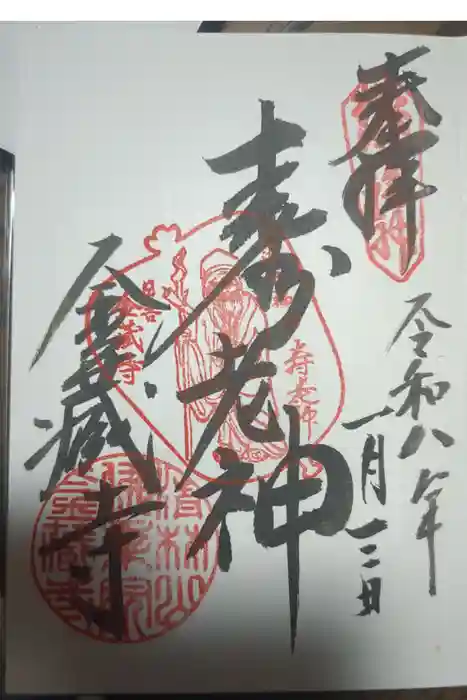 奉拝
令和八年
一月三日
寿老神
金蔵寺
日吉
金蔵寺
寿老神